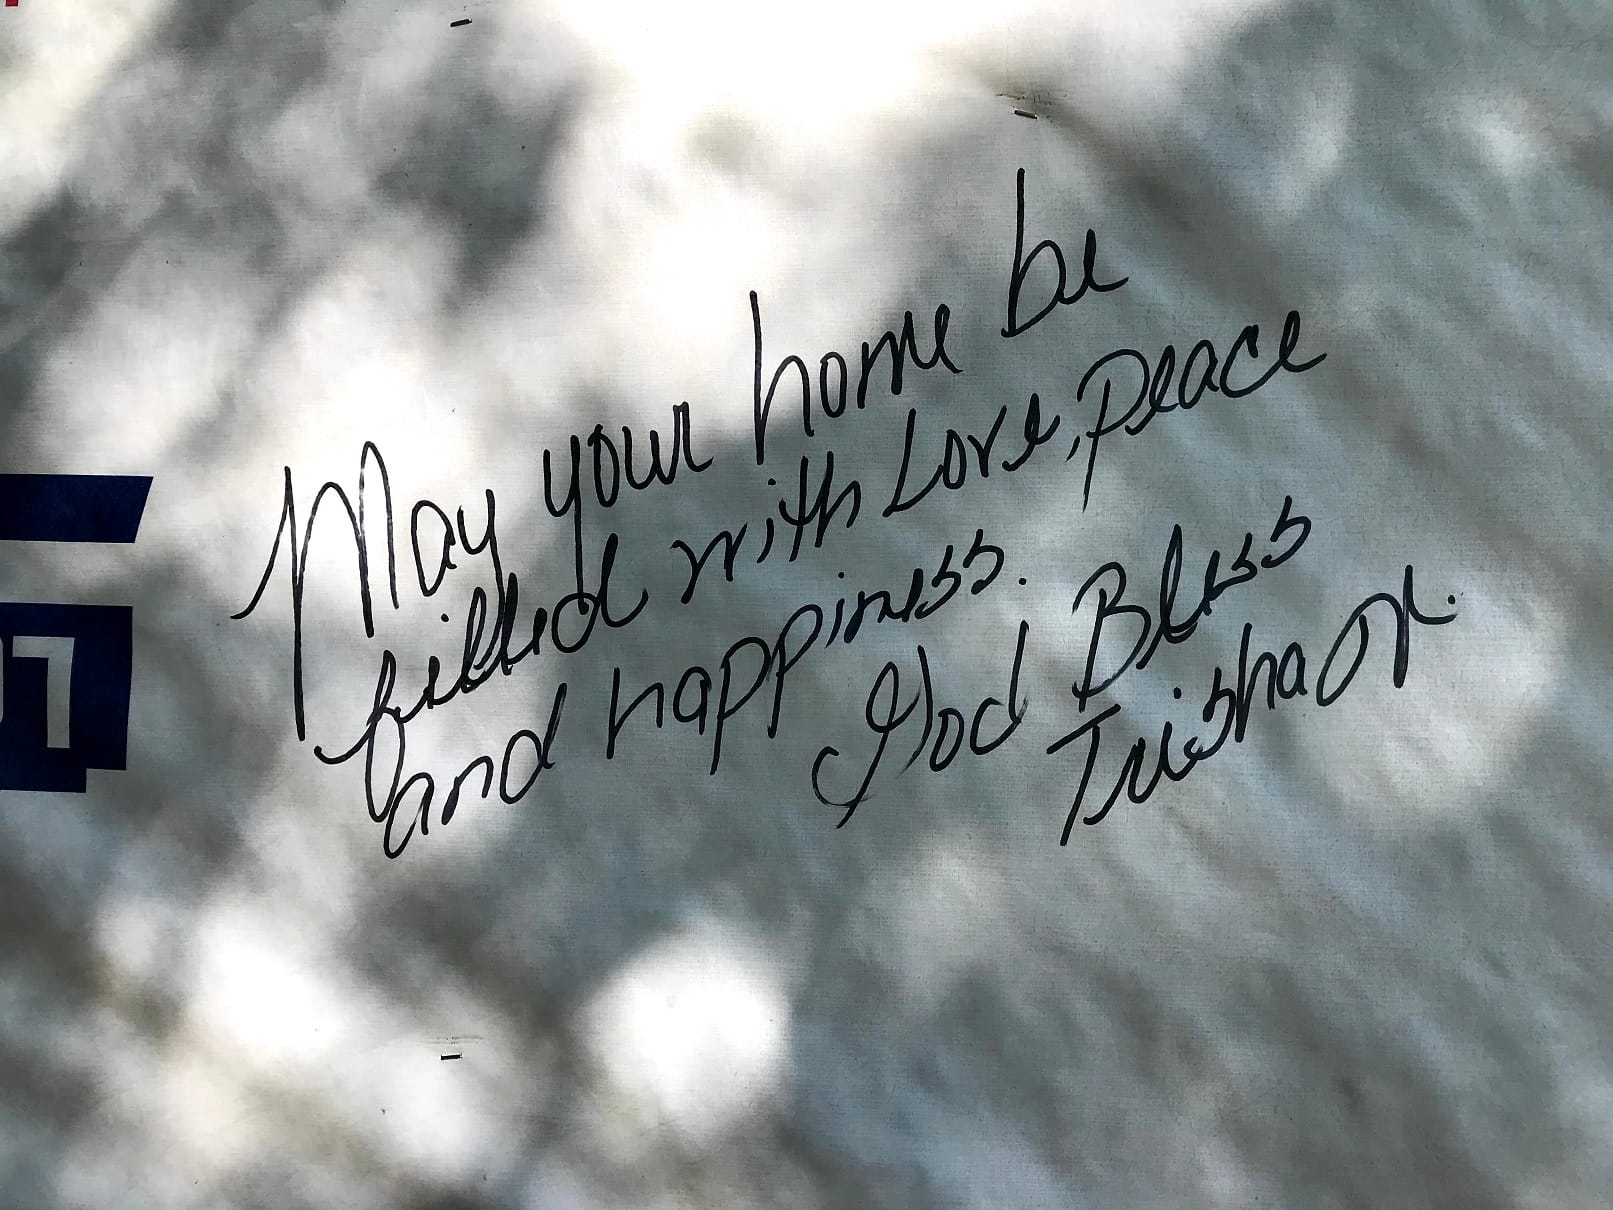 May your home be
filled with Love, peace
and happiness.
God Bless
Trisha